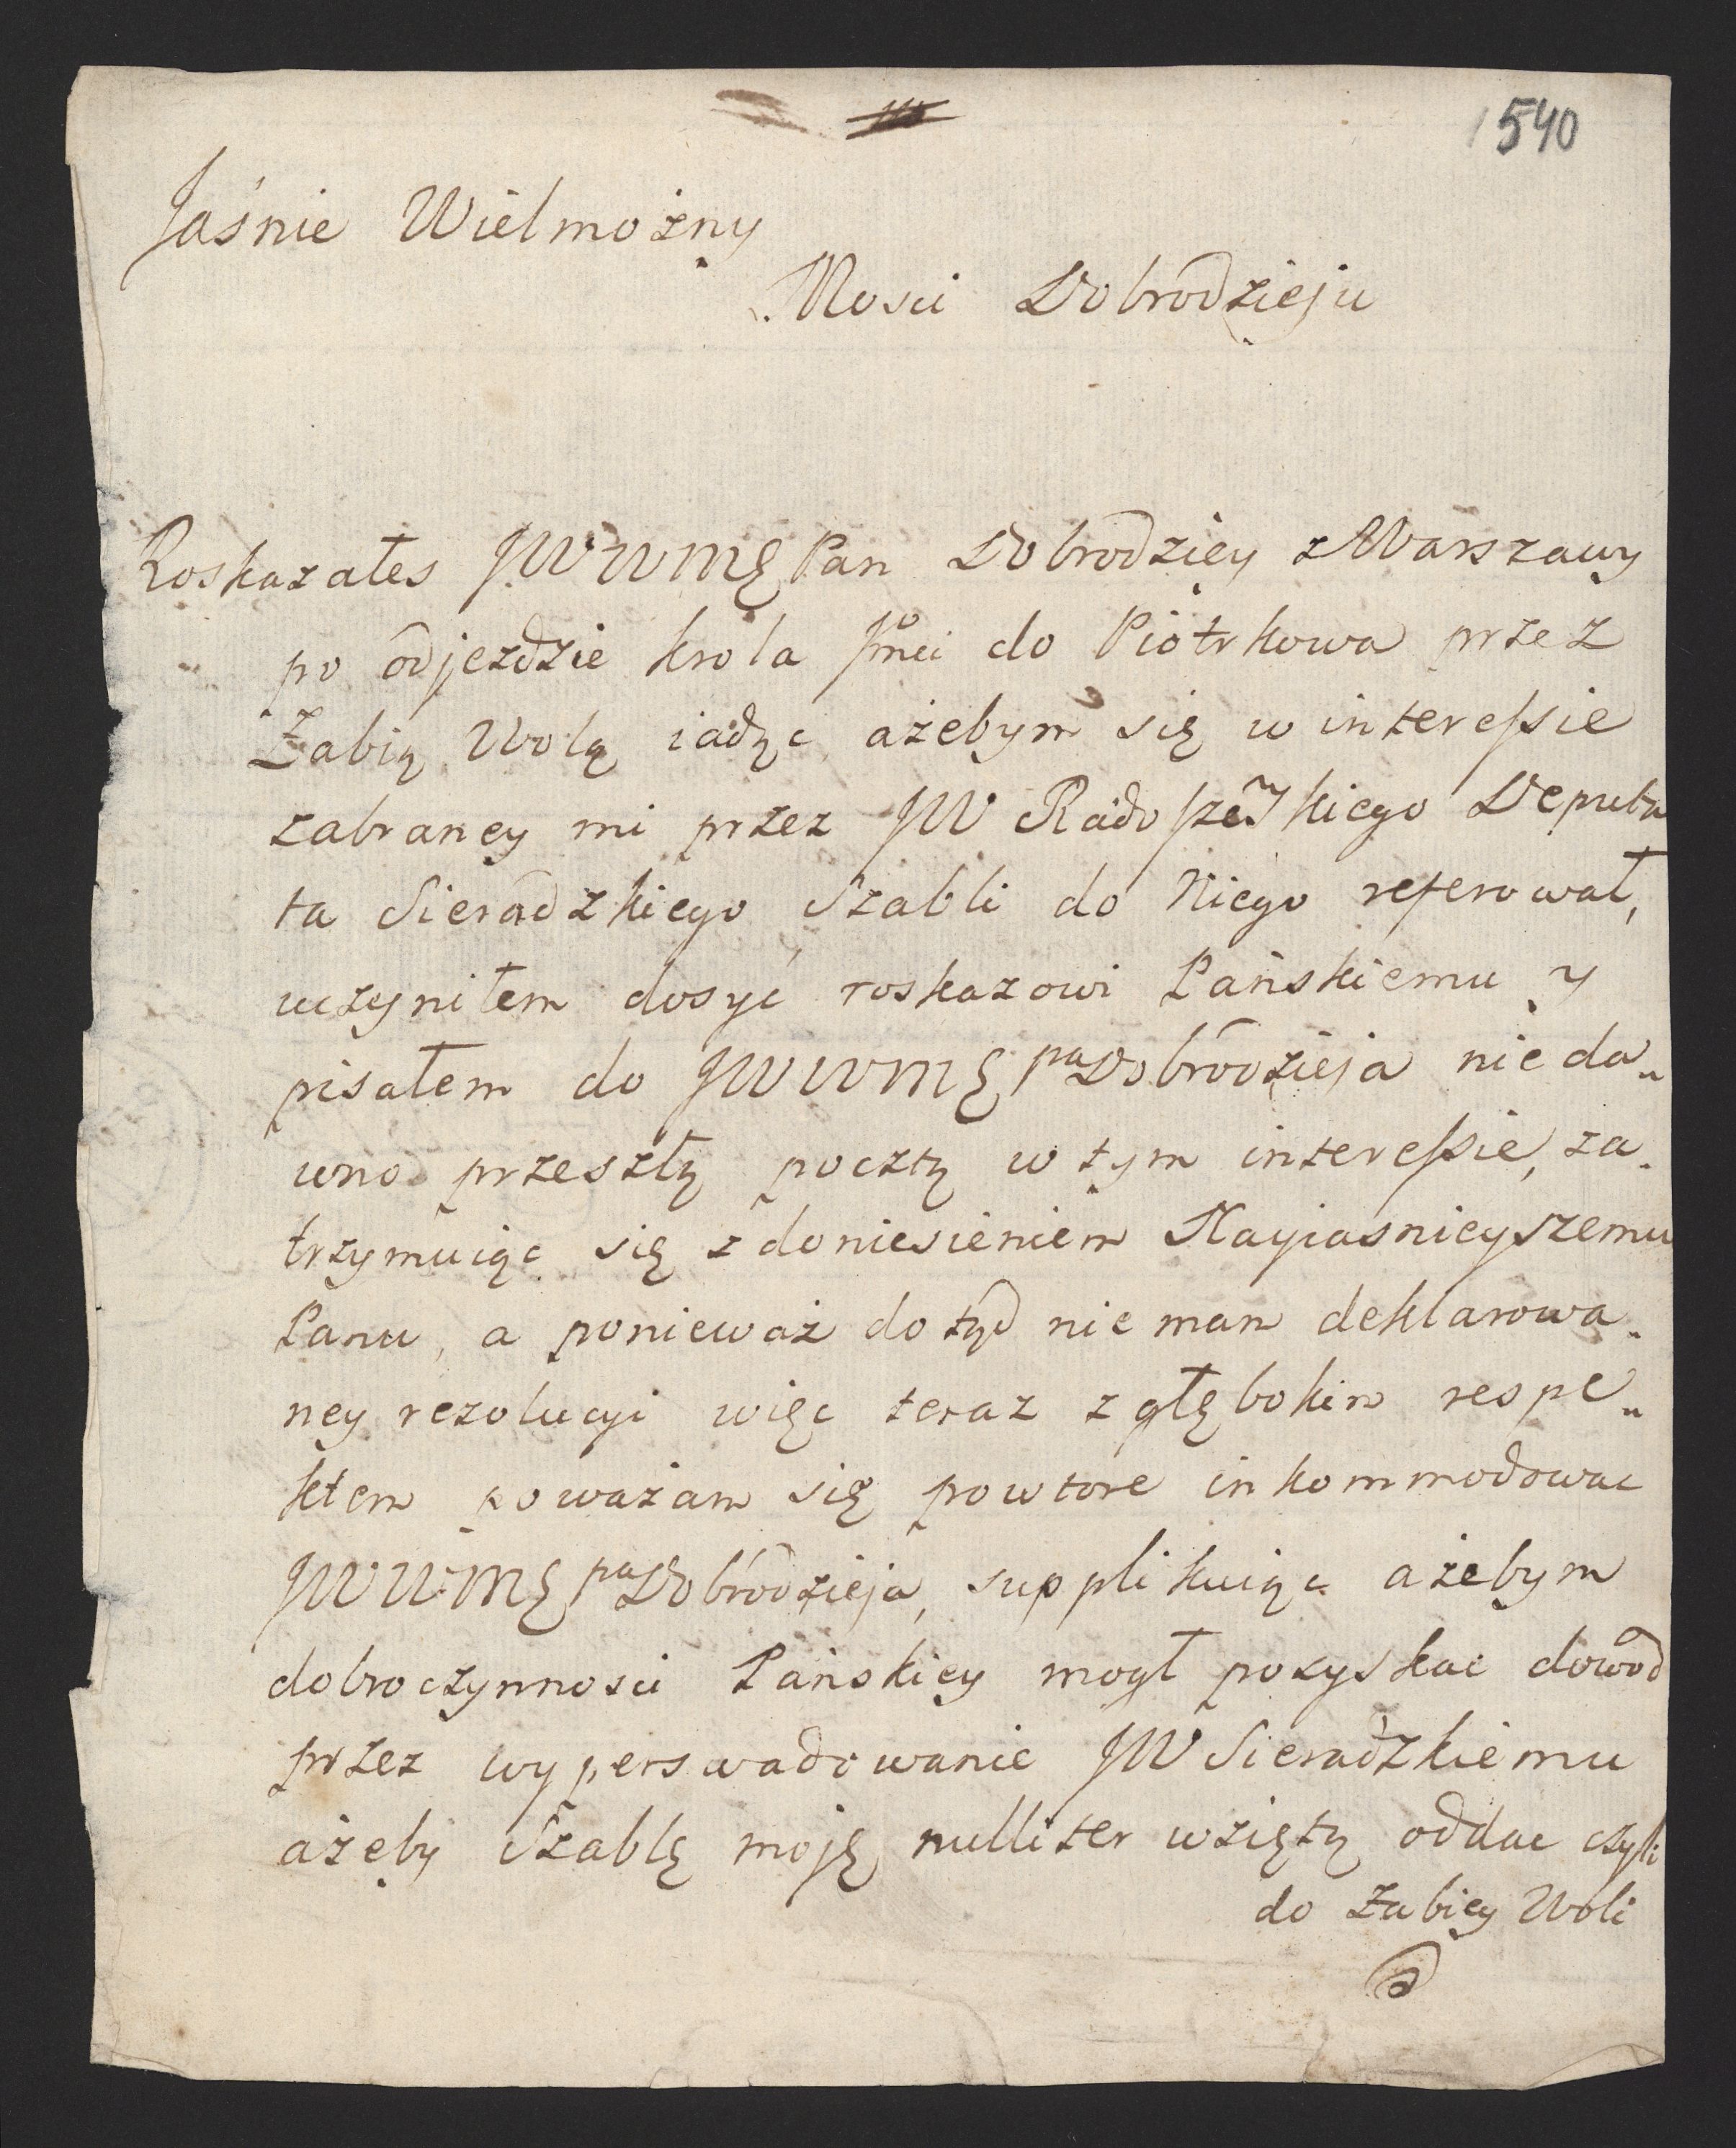 540
Jaśnie Wielmożny
Mosci Dobrodzieju
Roskazałes JWWMĘ Pan Dobrodziey z Warszawy
po odjezdzie krola Jmci do Piotrkowa przez
Żabią Wolą iadąc ażebym się w interessie
zabraney mi przez JW Radoszewskiego Deputa
ta Sieradzkiego Szabli do Niego referował,
uczyniłem dosyć roskazowi Pańskiemu y
pisałem do JWWMĘ pa Dobrodzieja nieda„
wno przeszłą pocztą w tym interessie, za.
trzymuiąc się z doniesieniem Nayiasnieyszemu
Panu, a ponieważ dotąd nie mam deklarowa.
ney rezolucyi więc teraz z głębokim respe„
ktem poważam się powtore inkommodowac
JWWMĘ pa Dobrodzieja, supplikuiąc ażebym
dobroczynnosci Pańskiey mogł pozyskac dowod
przez wyperswadowanie JW Sieradzkiemu
ażeby Szablę moję nulliter wziętą oddac czyli
do Żabiey Woli